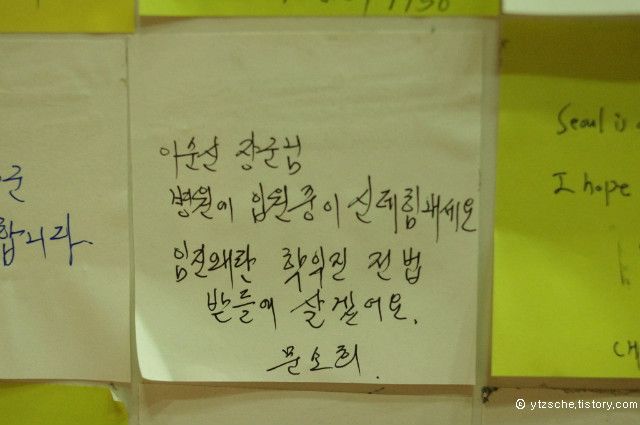 이순신 장군님
병원에 입원중이신데힘내세요
임진왜란 학익진 전법
받들어 살겠어요.
문소희.
합니다.
Seoul is
I hope
© ytzsche.tistory.com